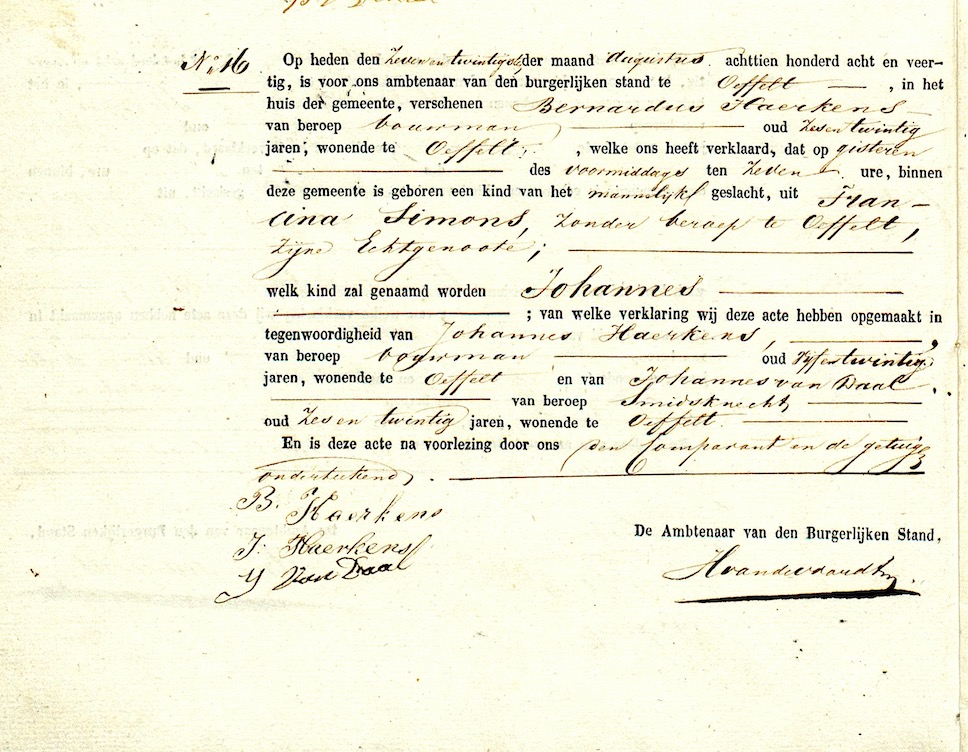 No 16 Op heden den Zeven en twintigste der maand Augustus achttien honderd acht en veer-
tig, is voor ons ambtenaar van den burgerlijken stand te Oeffelt , in het
huis der gemeente, verschenen Bernardus Haerkens
van beroep bouwman oud Zes en twintig
jaren, wonende te Oeffelt , welke ons heeft verklaard, dat op gisteren
des voormiddags ten Zeven ure, binnen
deze gemeente is geboren een kind van het mannelijk geslacht, uit Fran-
cina Simons, zonder beroep te Oeffelt,
zijne Echtgenoote;
welk kind zal genaamd worden Johannes
; van welke verklaring wij deze acte hebben opgemaakt in
tegenwoordigheid van Johannes Haerkens,
van beroep bouwman oud Vijf en twintig
jaren, wonende te Oeffelt en van Johannes van Daal,
van beroep Smidsknecht
oud Zes en twintig jaren, wonende te Oeffelt.
En is deze acte na voorlezing door ons den Comparant en de getuig
onderteekend.
B. Haerkens
J. Haerkens
De Ambtenaar van den Burgerlijken Stand,
J van Daal